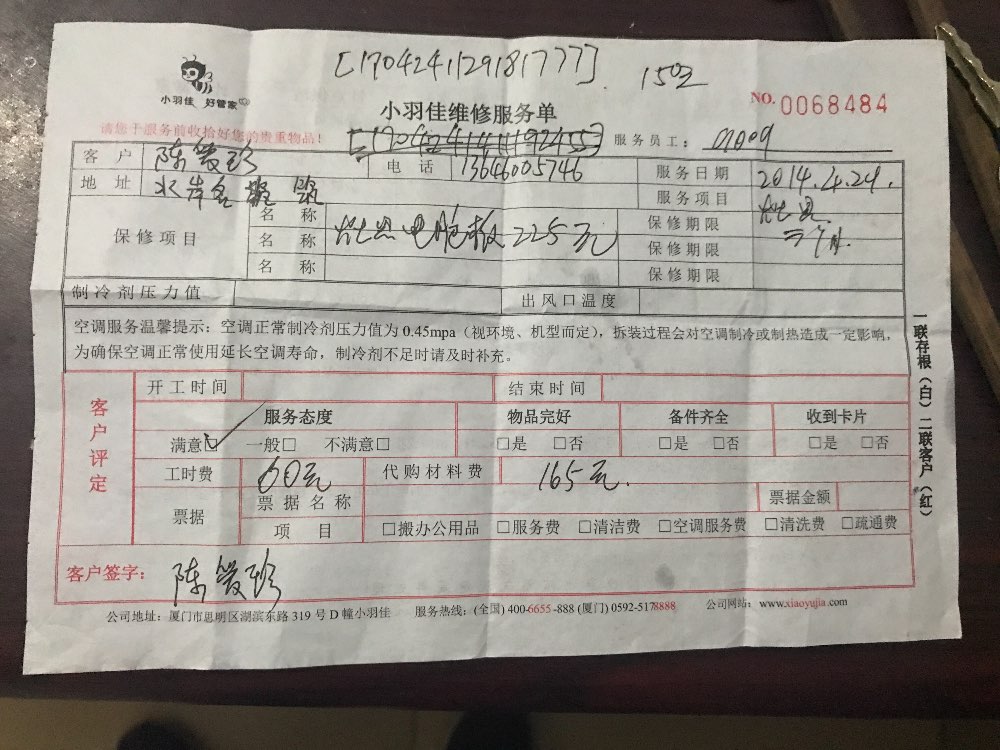 [1704241129181777]
150元
小羽佳 好管家
小羽佳维修服务单
NO. 0068484
请您于服务前收拾好您的贵重物品！
服务员工：
客 户 陈爱珍 电 话 13646005746 服务日期 2014.4.24.
地 址 水岸名筑 服务项目 灶具
保修项目
名 称 保修期限 三个月.
名 称 灶具电脑板225元 保修期限
名 称 保修期限
制冷剂压力值 出风口温度
空调服务温馨提示：空调正常制冷剂压力值为 0.45mpa（视环境、机型而定），拆装过程会对空调制冷或制热造成一定影响，
为确保空调正常使用延长空调寿命，制冷剂不足时请及时补充。
客户评定
开工时间 结束时间
服务态度 物品完好 备件齐全 收到卡片
满意☑ 一般□ 不满意□ □是 □否 □是 □否 □是 □否
工时费 60元 代购材料费 165元.
票据 票据名称 票据金额
项 目 □搬办公用品 □服务费 □清洁费 □空调服务费 □清洗费 □疏通费
客户签字： 陈爱珍
公司地址：厦门市思明区湖滨东路 319 号 D 幢小羽佳 服务热线：(全国) 400-6655-888 (厦门) 0592-5178888 公司网站：www.xiaoyujia.com
一联存根（白）二联客户（红）